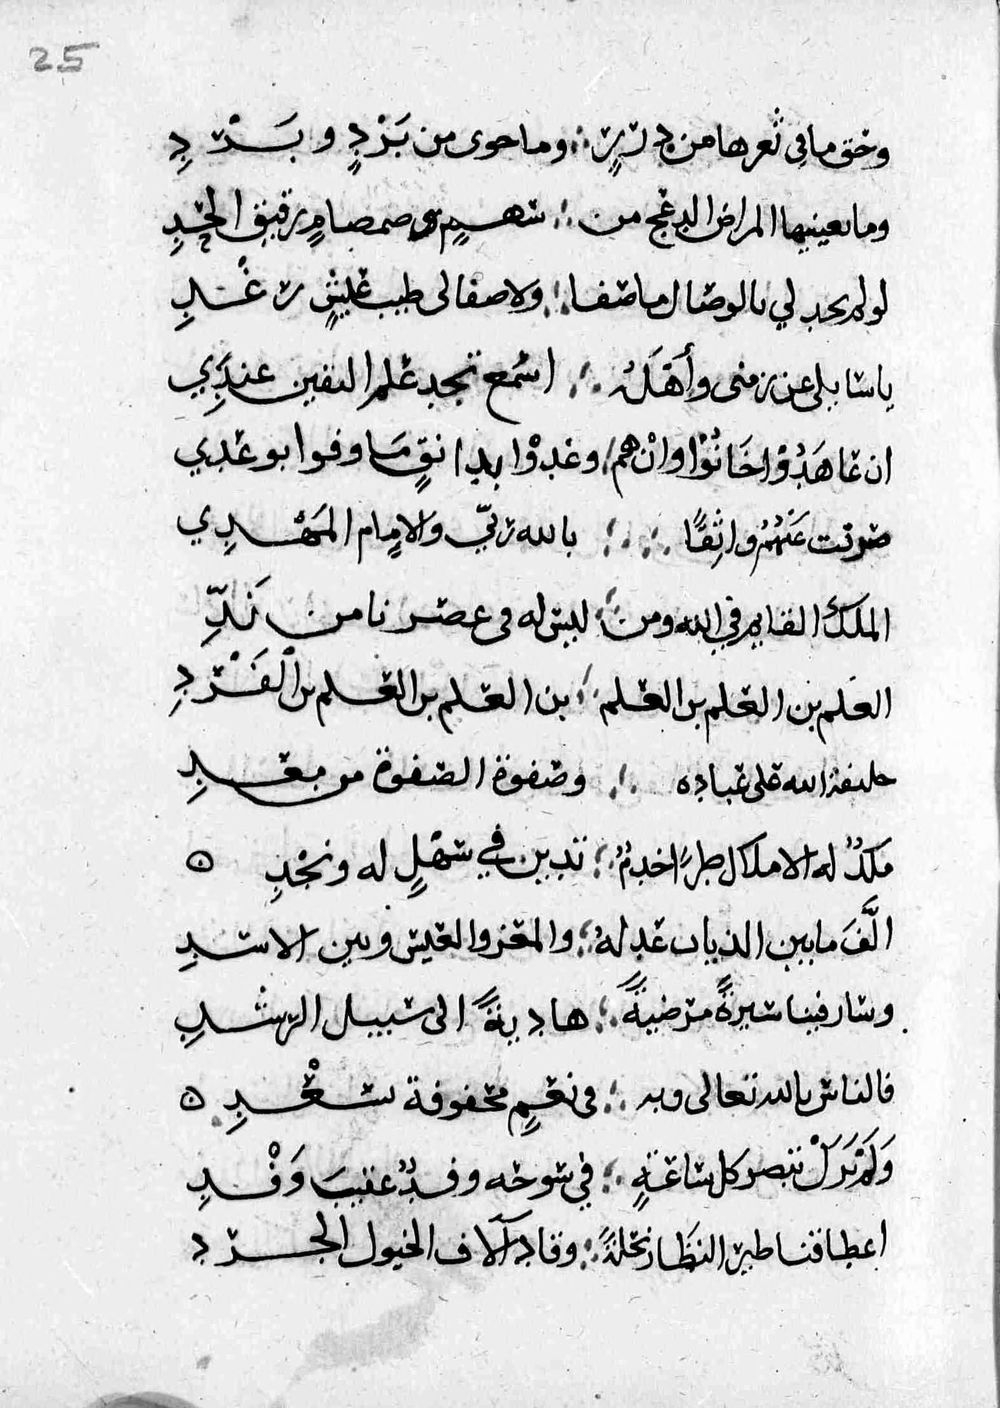 25
وحق ما في ثغرها من درر ؛ وما حوى من بَرْدٍ و بَرْدِ
وما بعينيها المراض الدعج من ؛ سهم صمصامٍ رقيق الحدِ
لو لم يجد لي بالوصال ما صفا ؛ ولا صفا لي طيب عيشٍ رغْدِ
يا سايلي عن زمني وأهَله ؛ اسمع تجد علم اليقين عندِي
ان عاهَدُوْا خَانُوْا وانْ هم ؛ وعدوْا وفوا بوعدي
عنهُم واثِقًا ؛ بالله ربّي والامام المَهْدِي
الملك القايم في الله ومن ؛ ليس له في عصرنا من نَدِّ
العَلم بن العَلم بن العلم ؛ بن العلم بن العلم بن الْفَرْدِ
خليفة الله على عباده ؛ وصفوة الصفوة من معدِ
مَلكٌ له الاملاك طرًا خدمٌ ؛ تدين في سَهْلٍ له ونجْدِ
الَّفَ ما بين الذياب عدله ؛ والمعز والعيس وبين الاسدِ
وسار فينا سيرةً مرضيةً ؛ هاديةً الى سبيل الرشْدِ
فالناس بالله تعالى وبه ؛ في نعمٍ محفوفة بسعْدِ
وَلَمْ تَزَلْ تبصر كل ساعةٍ ؛ في سوحه وفدٌ عقيبَ وَفْدِ
اعطا قناطير النظَار نحلةً ؛ وقاد آلاف الخيول الجرد